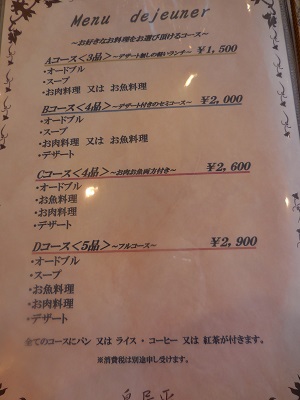 Menu dejeuner
～お好きなお料理をお選び頂けるコース～
Aコース<3品>～デザート無しの軽いランチ～ ¥1,500
・オードブル
・スープ
・お肉料理 又は お魚料理
Bコース<4品>～デザート付きのセミコース～ ¥2,000
・オードブル
・スープ
・お肉料理 又は お魚料理
・デザート
Cコース<4品>～お肉お魚両方付き～ ¥2,600
・オードブル
・お魚料理
・お肉料理
・デザート
Dコース<5品>～フルコース～ ¥2,900
・オードブル
・スープ
・お魚料理
・お肉料理
・デザート
全てのコースにパン 又は ライス・コーヒー 又は 紅茶が付きます。
※消費税は別途申し受けます。